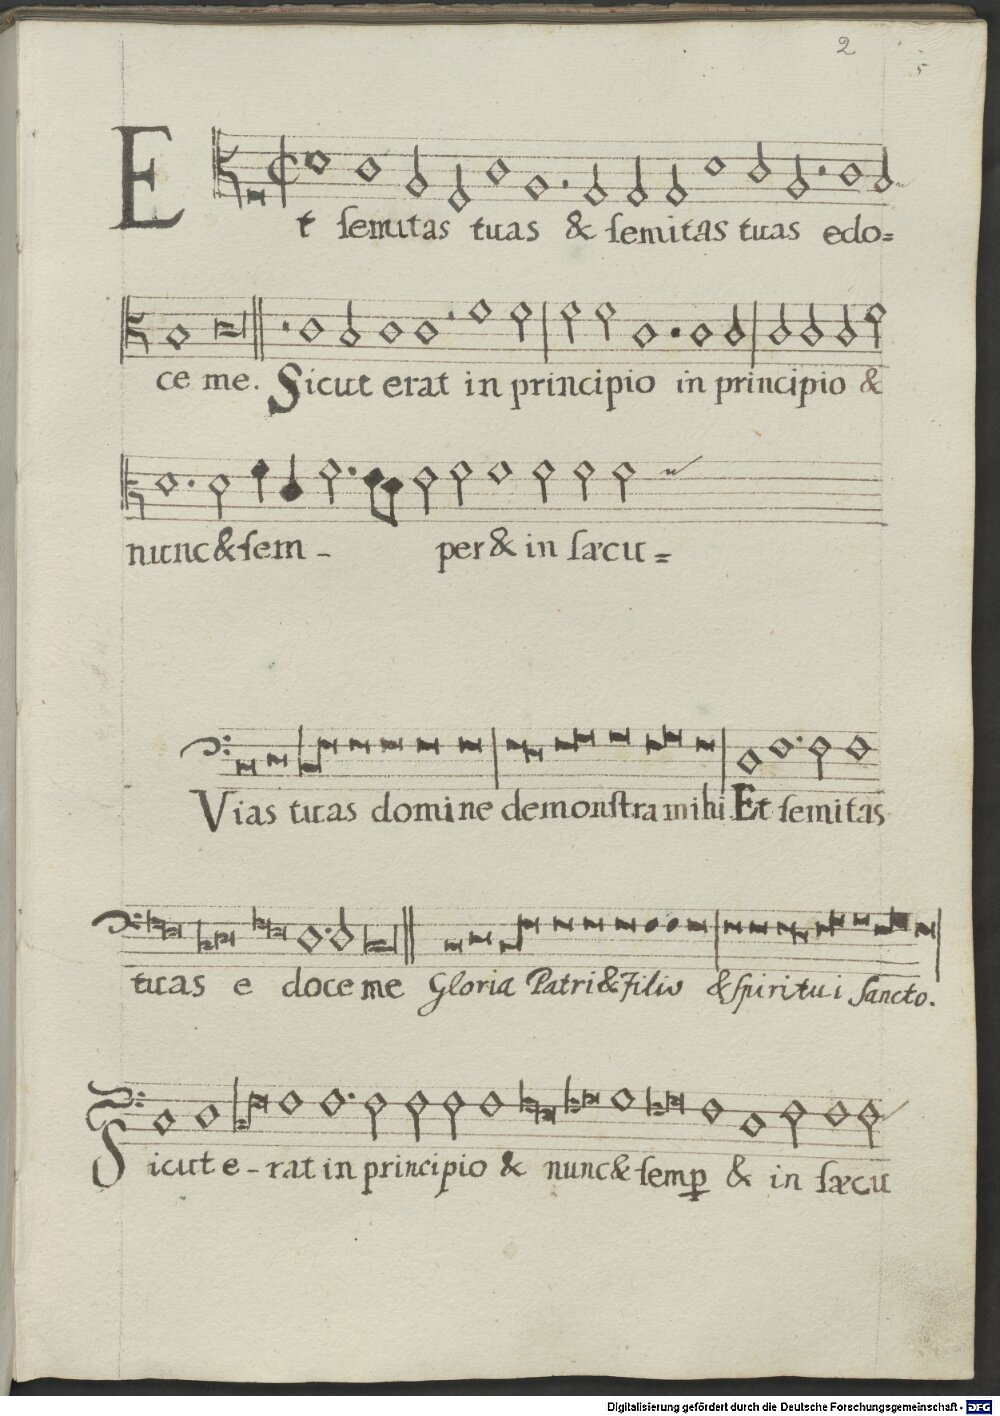 2
5
Et semitas tuas & semitas tuas edo=
ce me. Sicut erat in principio in principio &
nunc & sem - per & in sæcu =
Vias tuas domine demonstra mihi Et semitas
tuas e doce me Gloria Patri & Filio & spiritui sancto.
Sicut e - rat in principio & nunc & semp & in sæcu
Digitalisierung gefördert durch die Deutsche Forschungsgemeinschaft - DFG